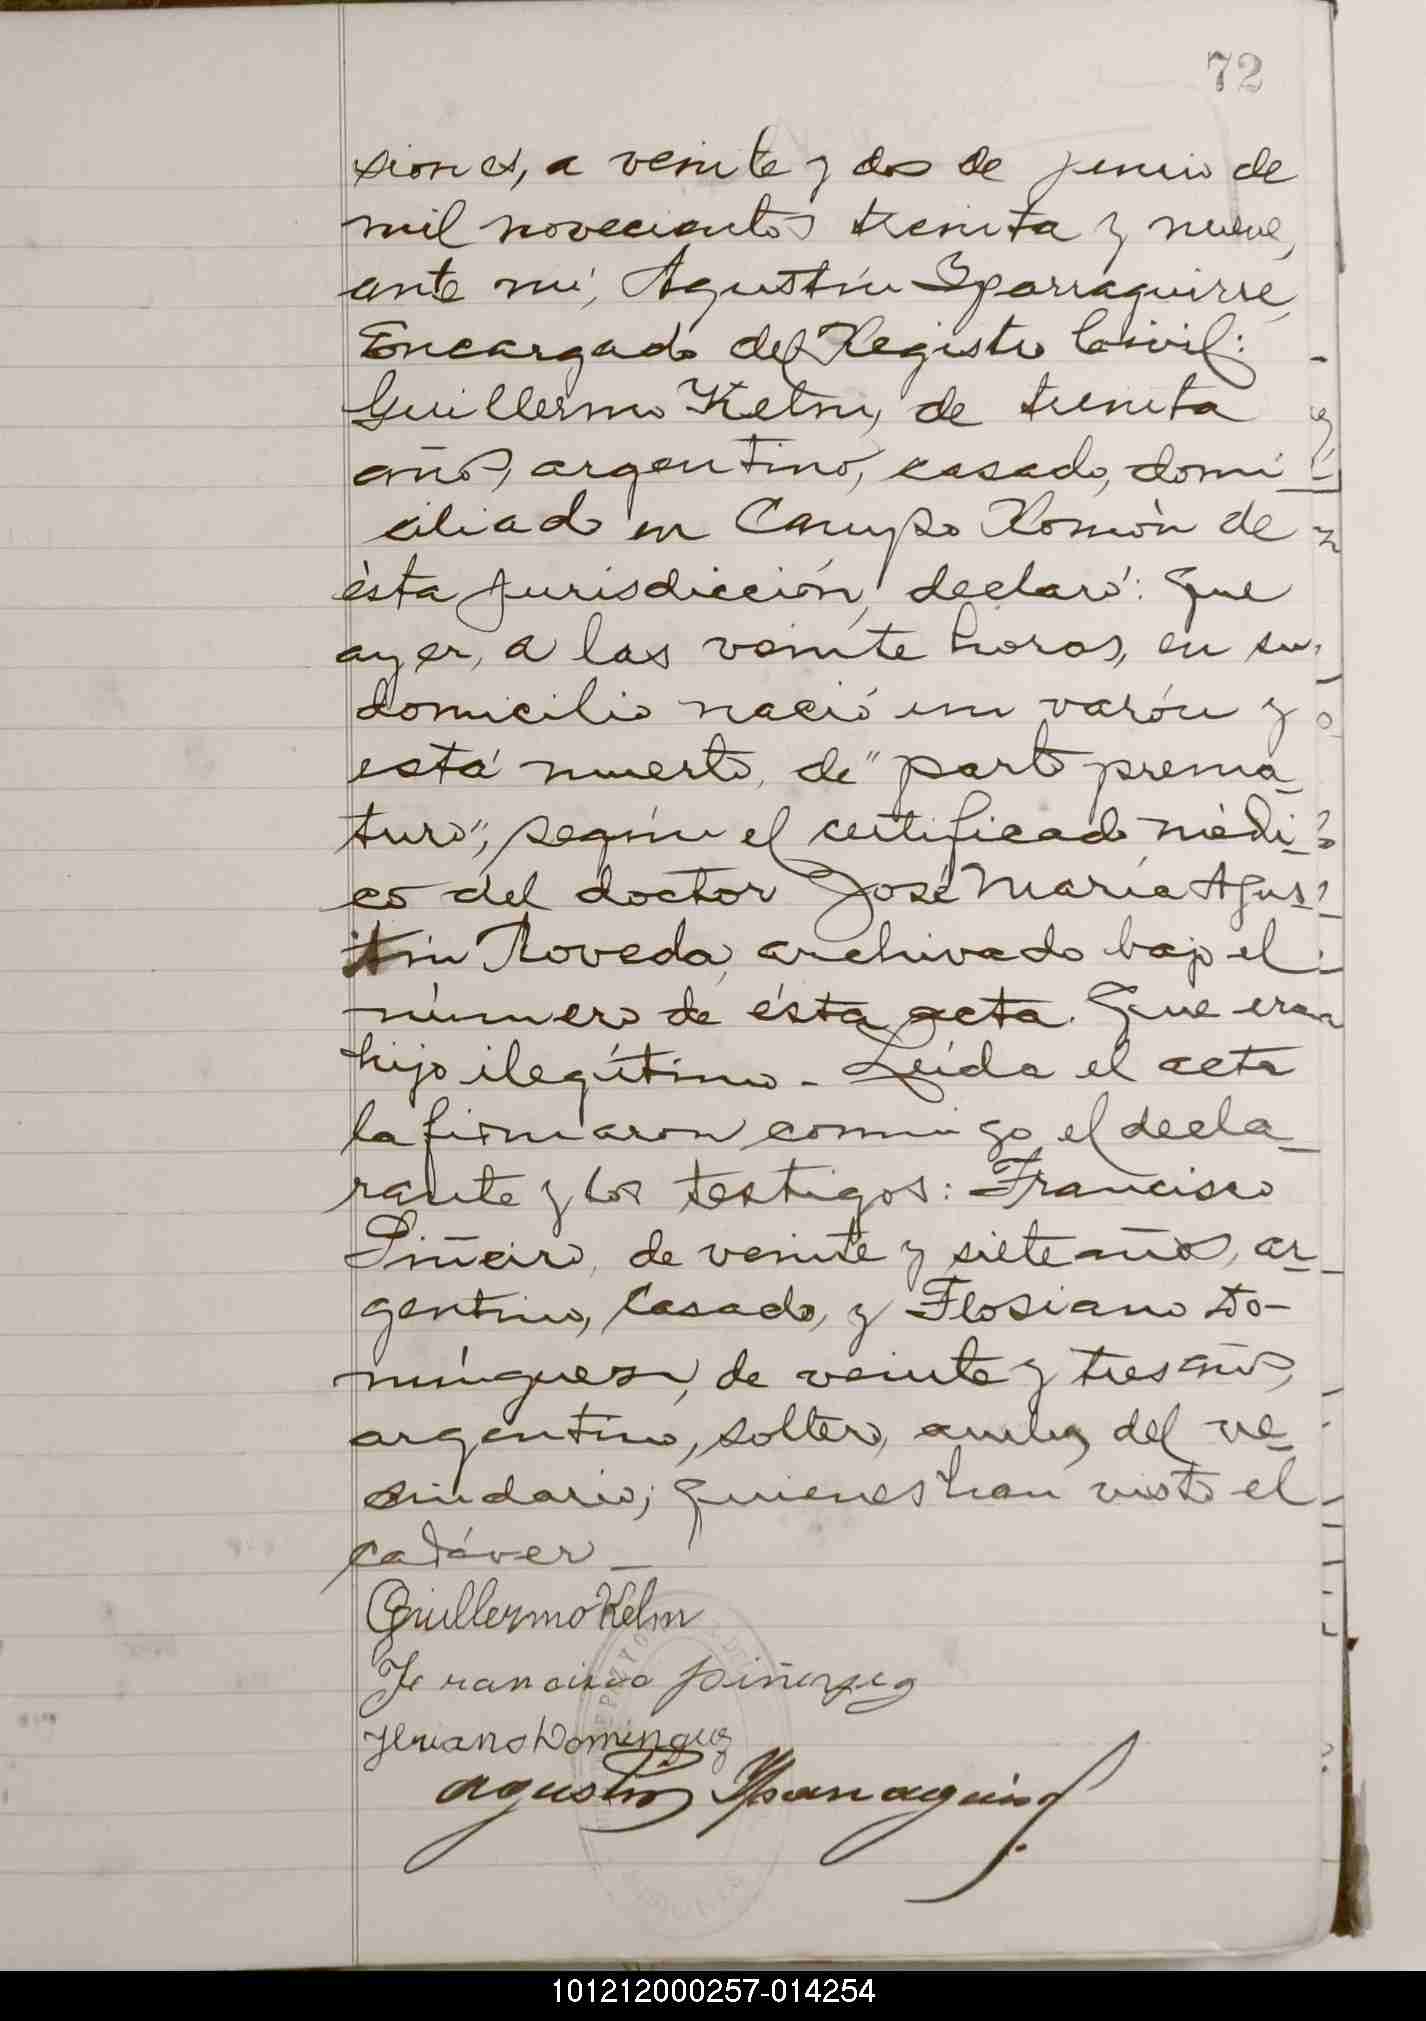 72
siones, a veinte y dos de junio de
mil novecientos treinta y nueve,
ante mí, Agustín Yparraguirre,
Encargado del Registro Civil:
Guillermo Kelm, de treinta
años, argentino, casado, domi
ciliado en Campo Romón de
ésta jurisdicción, declaró: Que
ayer, a las veinte horas, en su
domicilio nació un varón y
está muerto, de "parto prema_
turo", según el certificado médi_
co del doctor José María Agus_
tín Roveda, archivado bajo el
número de ésta acta. Que era
hijo ilegítimo - Leída el acta
la firmaron conmigo el decla_
rante y los testigos: Francisco
Piñeiro, de veinte y siete años, ar_
gentino, casado, y Floriano Do-
mínguez, de veinte y tres años,
argentino, soltero, ambos del ve_
cindario; quienes han visto el
cadáver_
Guillermo Kelm
Francisco
Domínguez
Agustín Yparraguirre
101212000257-014254